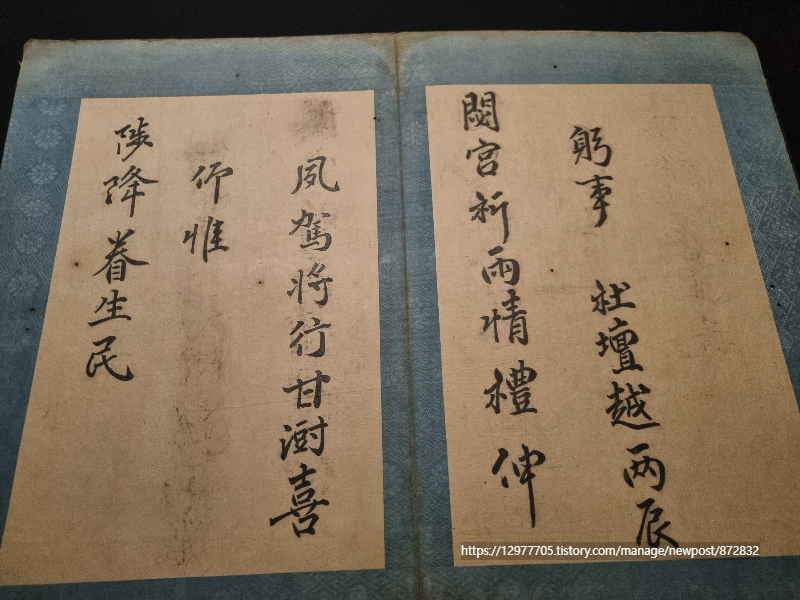 躬事 社壇越兩辰
閟宮祈雨情禮伸
夙駕將行甘澍喜
仰惟
陟降眷生民
https://12977705.tistory.com/manage/newpost/872832